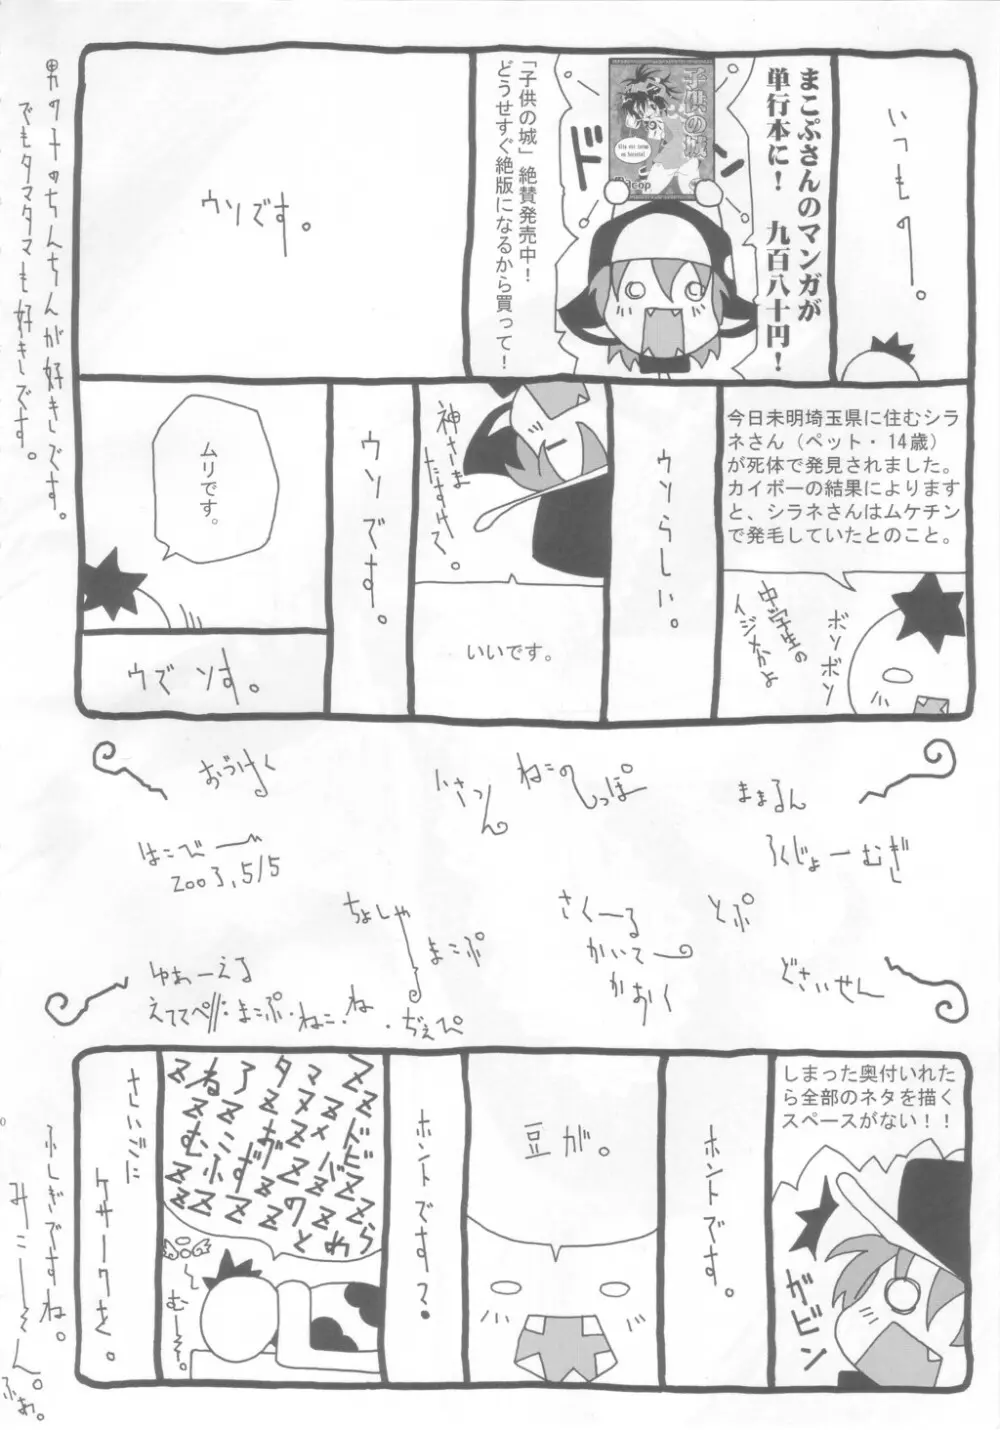 いつもの。
まこぷさんのマンガが
単行本に！　九百八十円！
ドーン
子供の城
「子供の城」絶賛発売中！
どうせすぐ絶版になるから買って！
ウソです。
今日未明埼玉県に住むシラ
ネさん（ペット・14歳）
が死体で発見されました。
カイボーの結果によります
と、シラネさんはムケチン
で発毛していたとのこと。
ボソボソ
中学生の
イジメかよ
ウソらしい。
神さま
たすけて。
いいです。
ウソです。
ムリです。
ウズソす。
おづけく
ねこのしっぽ
ままるん
ろくじょーむぎ
はこびー
2003,5/5
ちょしゃ
まこぷ
さくーる
かいてー
かおく
とぷ
どさいせん
ゆあーえる
しまった奥付いれた
ら全部のネタを描く
スペースがない！！
ガビン
ホントです。
豆が。
ホントです？
むー。
さいごに
ケサークを。
男の子のちんちんが好きです。
でもタマタマも好きです。
ふしぎですね。
みこーそん。
ふぁ。